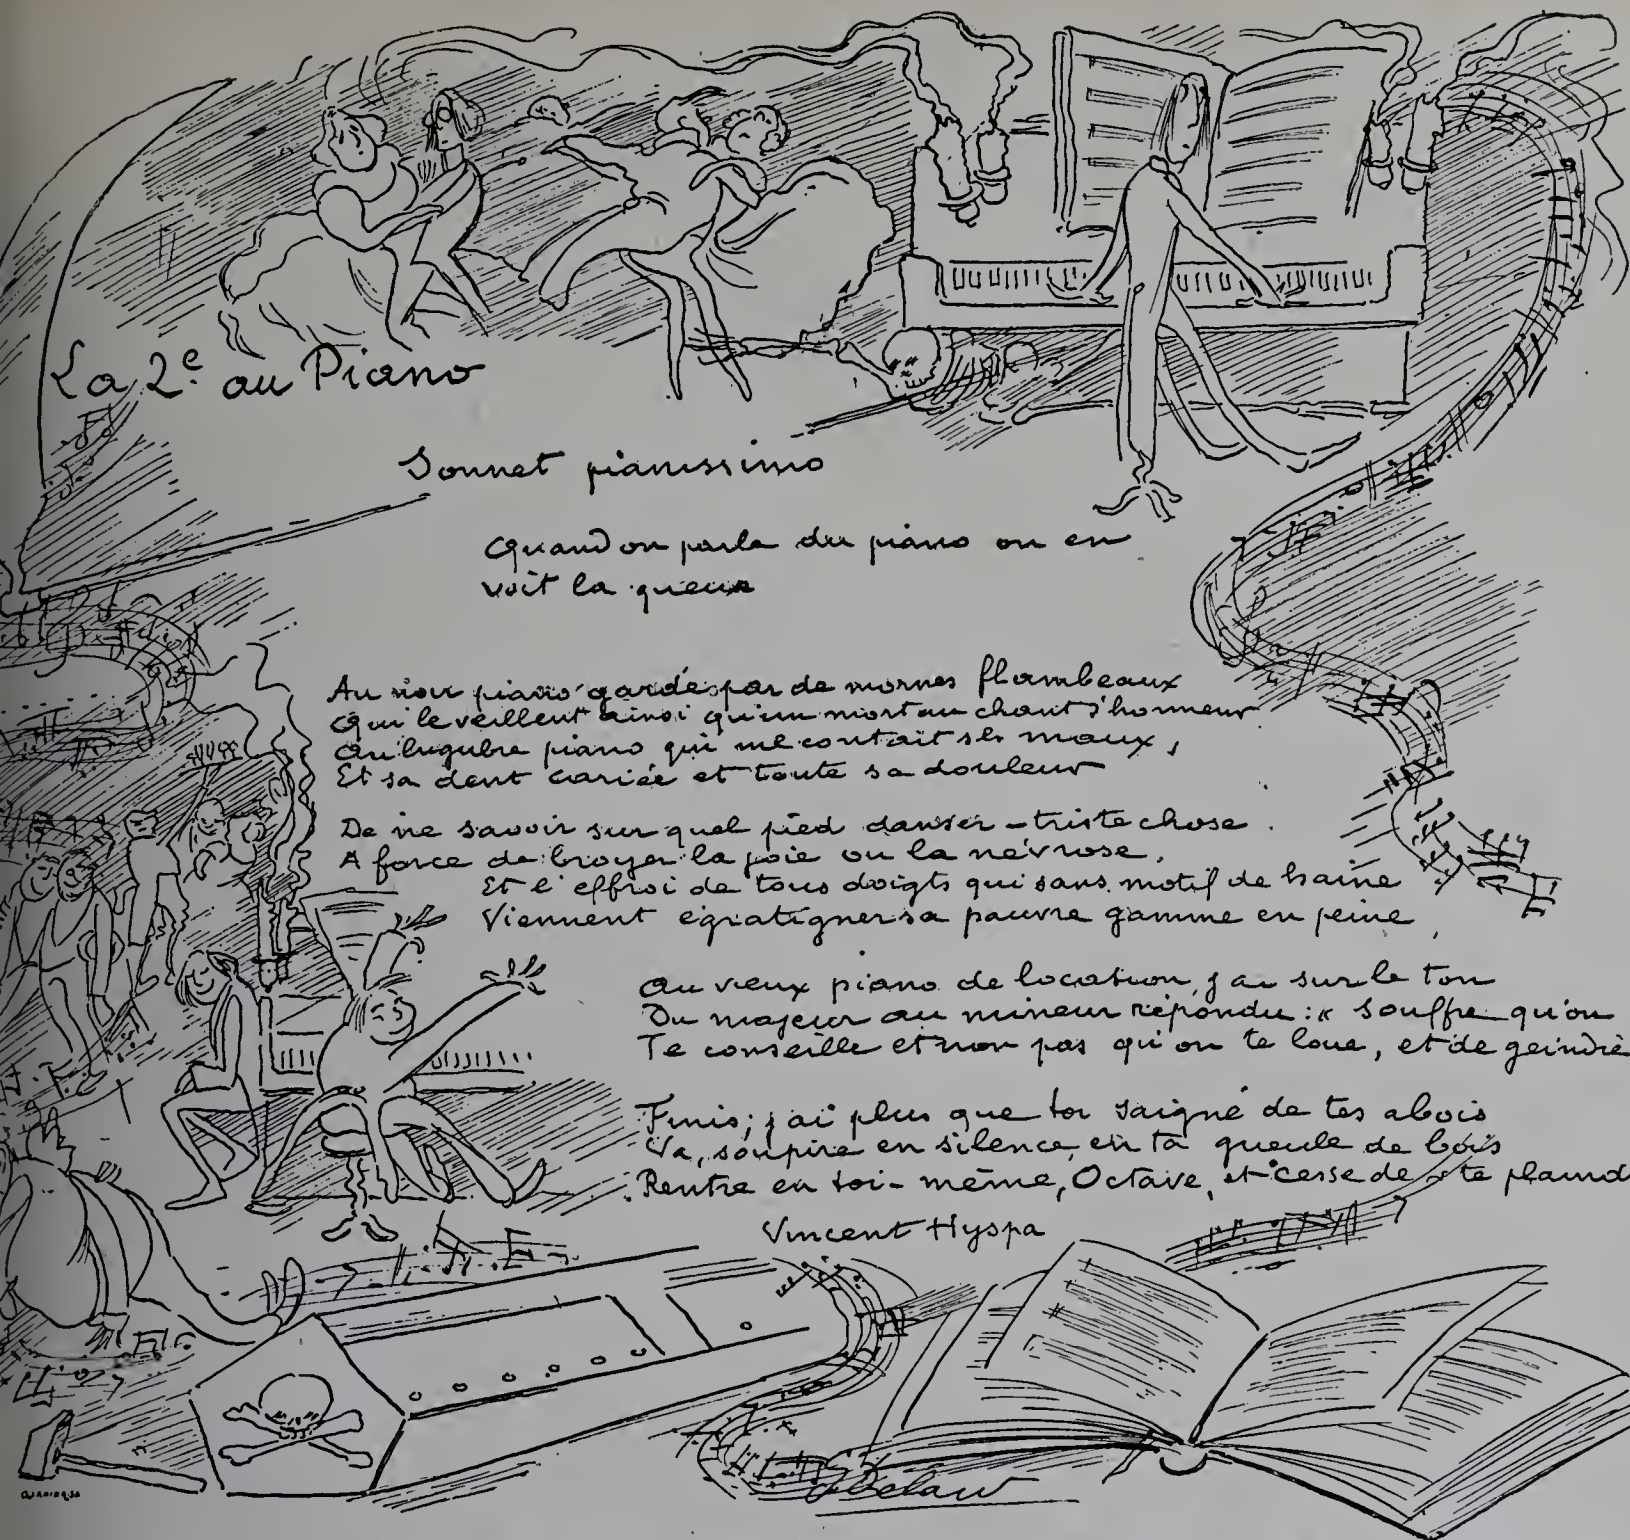 La 2e au Piano
Sonnet pianissimo
Quand on parle du piano on en
voit la queue
Au noir piano gardé par de mornes flambeaux
Qui le veillent ainsi qu'un mort au chant d'honneur
Au lugubre piano qui me contait ses maux,
Et sa dent cariée et toute sa douleur
De ne savoir sur quel pied danser - triste chose.
A force de broyer la joie ou la névrose,
Et l'effroi de tous doigts qui sans motif de haine
Viennent égratigner sa pauvre gamme en peine,
Au vieux piano de location, j'ai sur le ton
Du majeur au mineur répondu : « Souffre qu'on
Te conseille et non pas qu'on te loue, et de geindre
Finis; j'ai plus que toi saigné de tes abois
Va, soupire en silence, en ta gueule de bois
Rentre en toi-même, Octave, et cesse de te plaind
Vincent Hyspa
Delaw